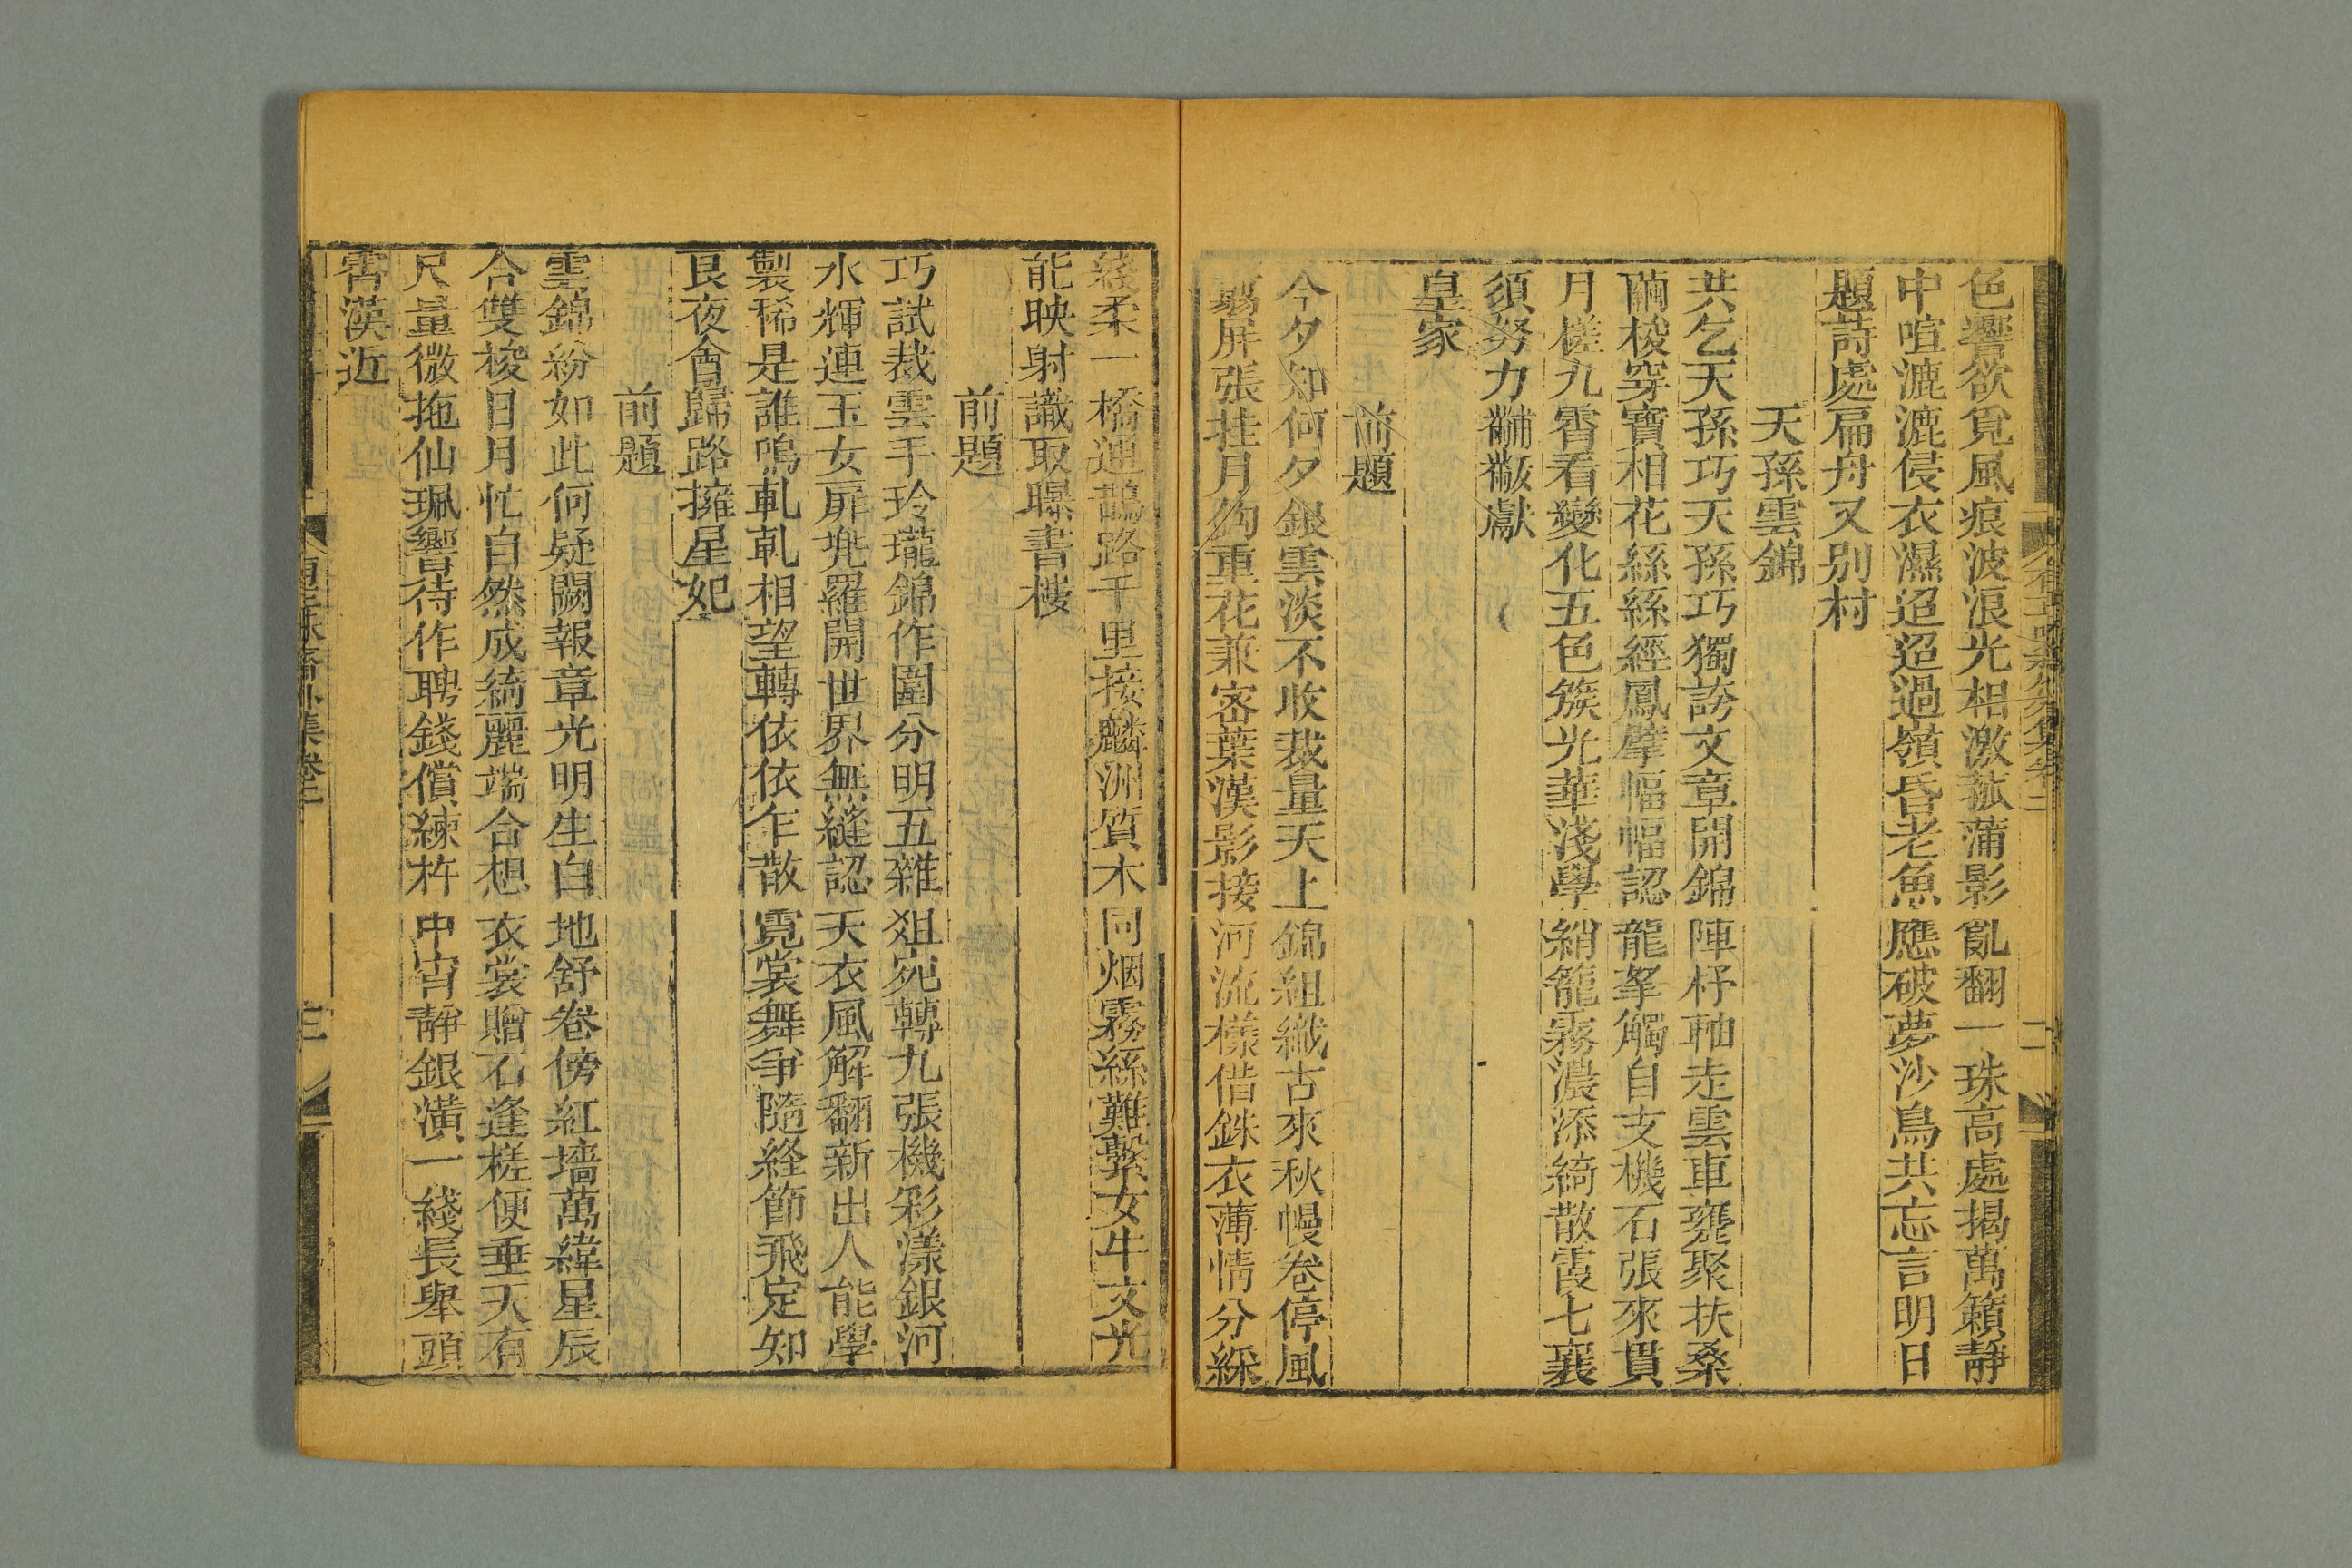 色響欲覓風痕波浪光相激菰蒲影亂翻一珠高處揭萬籟靜
中喧漉漉侵衣濕迢迢過嶺昏老魚應破夢沙鳥共忘言明日
題詩處扁舟又別村
天孫雲錦
共乞天孫巧天孫巧獨誇文章開錦陣杼軸走雲車甕聚扶桑
繭梭穿寶相花絲絲經鳳擘幅幅認龍拏觸自支機石張來貫
月槎九霄看變化五色簇光華淺學綃籠霧濃添綺散霞七襄
須努力黼黻獻
皇家
前題
今夕知何夕銀雲淡不收裁量天上錦組織古來秋幔卷停風
扇屏張挂月鉤重花兼密葉漢影接河流樣借銖衣薄情分綵
綫柔一橋通鵲路千里接麟洲質木同烟霧絲難繫女牛文光
能映射識取曝書樓
前題
巧試裁雲手玲瓏錦作圍分明五雜俎宛轉九張機彩漾銀河
水輝連玉女扉兜羅開世界無縫認天衣風解翻新出人能學
製稀是誰鳴軋軋相望轉依依乍散霓裳舞爭隨絳節飛定知
良夜會歸路擁星妃
前題
雲錦紛如此何疑闕報章光明生白地舒卷傍紅墻萬緯星辰
合雙梭日月忙自然成綺麗端合想衣裳贈石逢槎便垂天有
尺量微拖仙珮響待作聘錢償練杵中宵靜銀潢一綫長舉頭
霄漢近